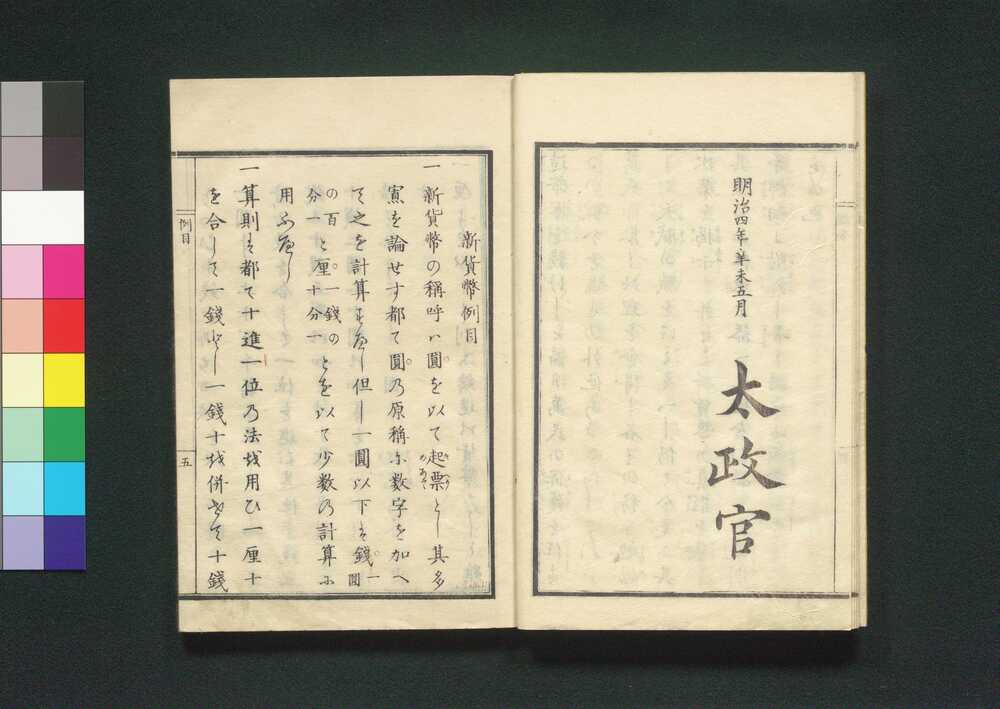 明治四年辛未五月
太政官
新貨幣例目
一 新貨幣の稱呼ハ圓を以て起票とし其多
寡を論せす都て圓の原稱に數字を加へ
て之を計算すへし但し一圓以下は錢一圓
の百分一と厘一錢の十分一とを以て少数の計算に
用ふへし
一 算則は都て十進一位の法を用ひ一厘十
を合して一錢とし一錢十を併せて十錢
例目
五